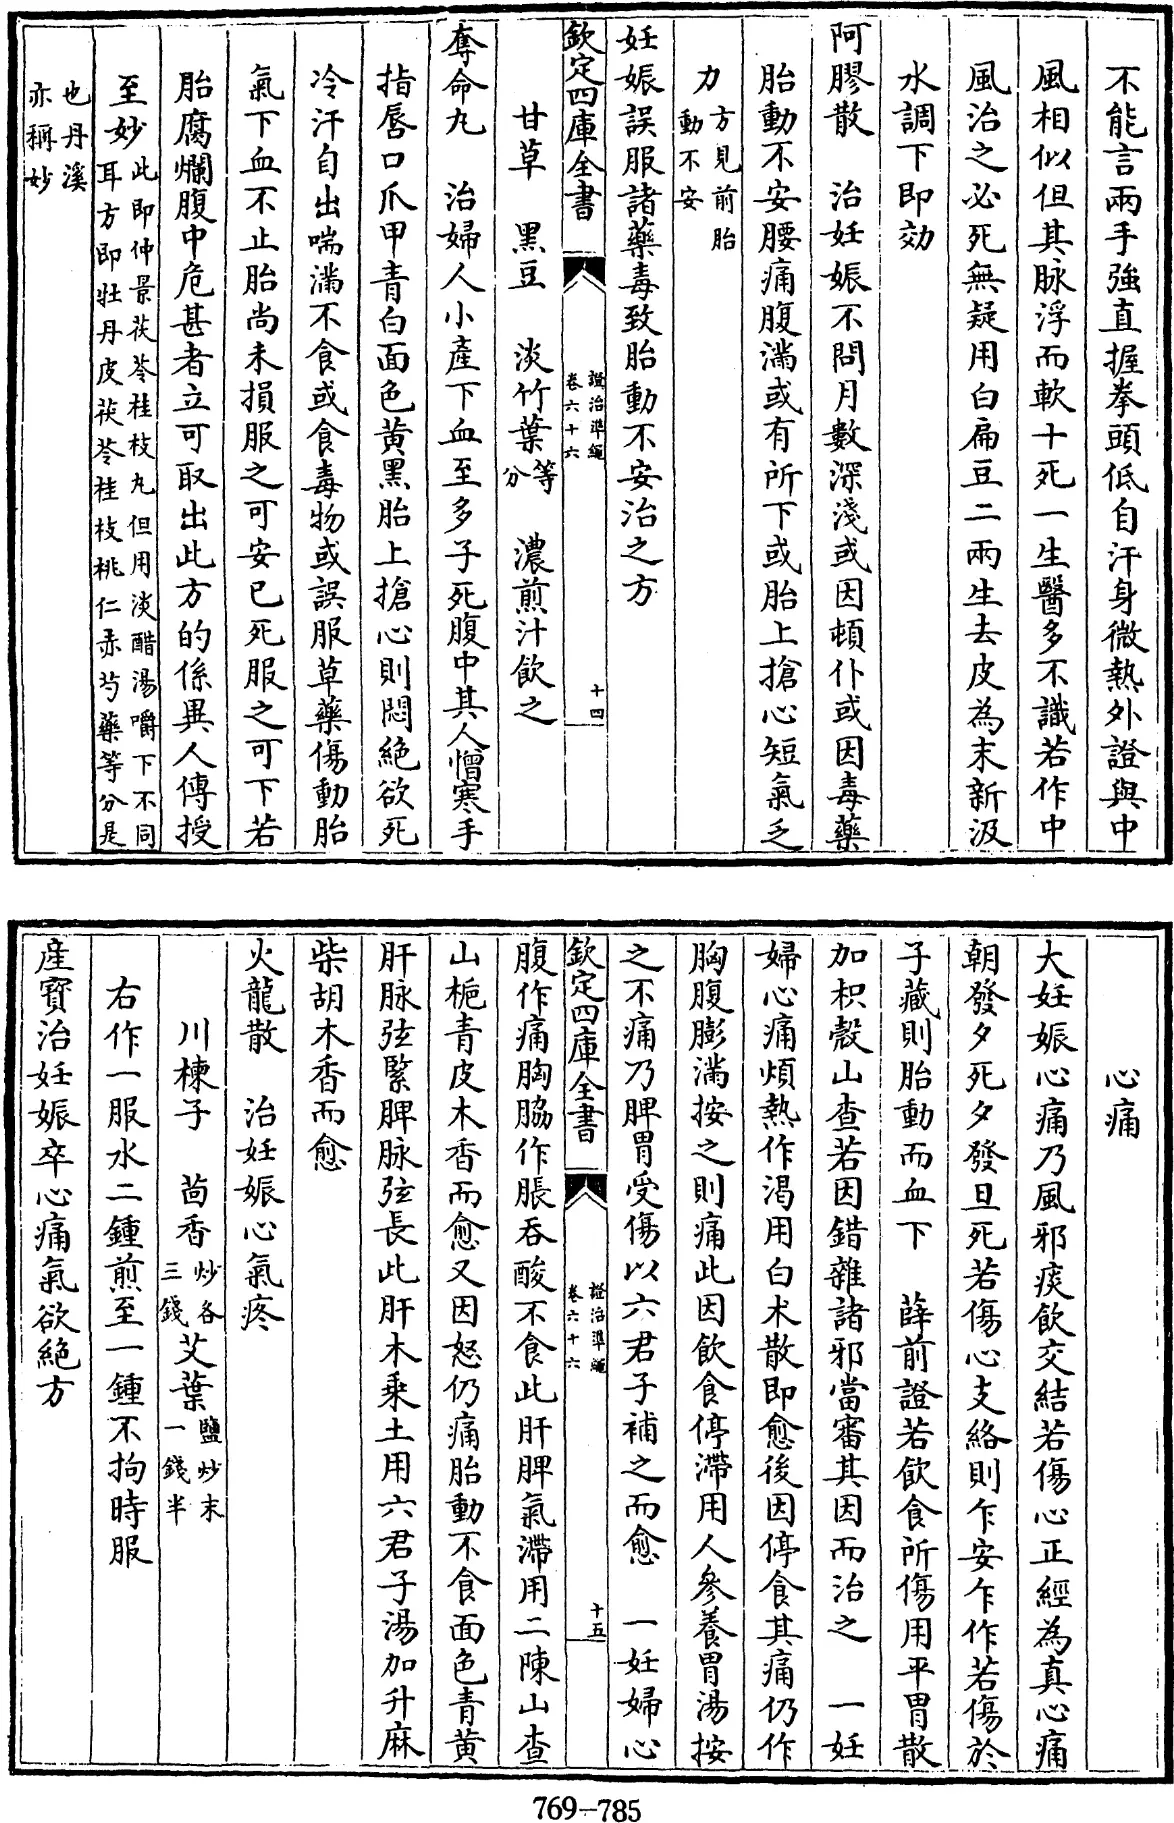 不能言兩手強直握拳頭低自汗身微熱外證與中
風相似但其脉浮而軟十死一生醫多不識若作中
風治之必死無疑用白扁豆二兩生去皮為末新汲
水調下即効
阿膠散　治妊娠不問月數深淺或因頓仆或因毒藥
胎動不安腰痛腹滿或有所下或胎上搶心短氣乏
力方見前胎
動不安
妊娠誤服諸藥毒致胎動不安治之方
欽定四庫全書
證治準繩
卷六十六
十四
甘草　黑豆　淡竹葉等
分　濃煎汁飲之
奪命丸　治婦人小產下血至多子死腹中其人憎寒手
指唇口爪甲青白面色黃黑胎上搶心則悶絶欲死
冷汗自出喘滿不食或食毒物或誤服草藥傷動胎
氣下血不止胎尚未損服之可安已死服之可下若
胎腐爛腹中危甚者立可取出此方的係異人傳授
至妙此即仲景茯苓桂枝丸但用淡醋湯嚼下不同
耳方即牡丹皮茯苓桂枝桃仁赤芍藥等分是
也丹溪
亦稱妙
心痛
大妊娠心痛乃風邪痰飲交結若傷心正經為真心痛
朝發夕死夕發旦死若傷心支絡則乍安乍作若傷於
子藏則胎動而血下　薛前證若飲食所傷用平胃散
加枳殼山查若因錯雜諸邪當審其因而治之　一妊
婦心痛煩熱作渴用白术散即愈後因停食其痛仍作
胸腹膨滿按之則痛此因飲食停滯用人參養胃湯按
之不痛乃脾胃受傷以六君子補之而愈　一妊婦心
欽定四庫全書
證治準繩
卷六十六
十五
腹作痛胸脇作脹吞酸不食此肝脾氣滯用二陳山查
山梔青皮木香而愈又因怒仍痛胎動不食面色青黃
肝脉弦緊脾脉弦長此肝木乘土用六君子湯加升麻
柴胡木香而愈
火龍散　治妊娠心氣疼
川楝子　茴香炒各
三錢艾葉鹽炒末
一錢半
右作一服水二鍾煎至一鍾不拘時服
產寶治妊娠卒心痛氣欲絶方
769-785